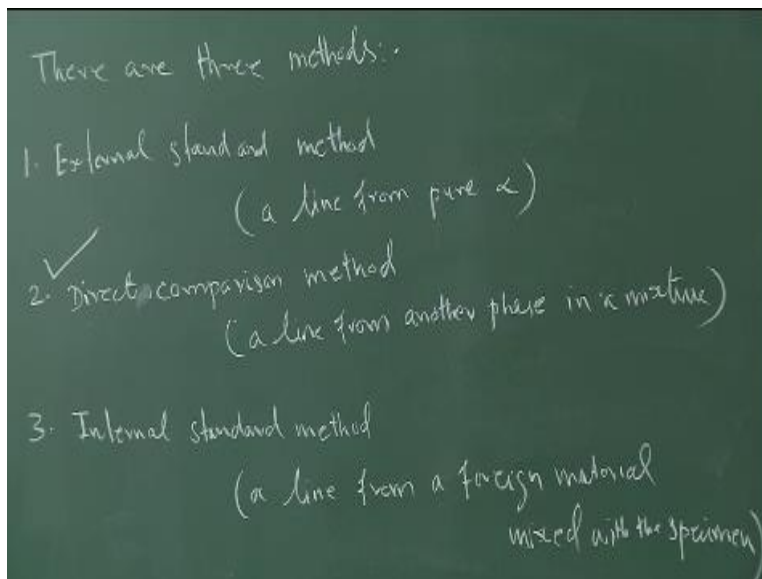 There are three methods:.
1. External standard method
(a line from pure α)
2. Direct comparison method
(a line from another phase in a mixture)
3. Internal standard method
(a line from a foreign material
mixed with the specimen)